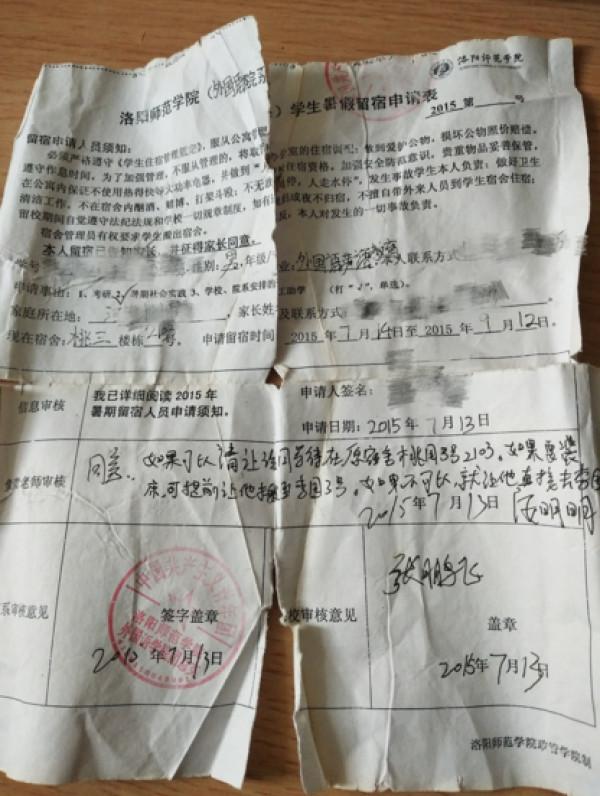 洛阳师范学院
洛阳师范学院（外国语学院 ）学生暑假留宿申请表
2015 第 号
留宿申请人员须知：
必须严格遵守《学生住宿管理规定》，服从公寓 室的住宿调配；做到爱护公物，损坏公物照价赔偿。
遵守作息时间。为了加强管理，不服从管理的，将取 住宿资格。加强安全防范意识，贵重物品妥善保管。
在公寓内保证不使用热得快等大功率电器，并做到“ 停，人走水停”，发生事故学生本人负责；做好卫生
清洁工作。不在宿舍内酗酒、赌博、打架斗殴；不无故 或夜不归宿，不擅自带外来人员到学生宿舍住宿；
留校期间自觉遵守法纪法规和学校一切规章制度，如有 反，本人对发生的一切事故负责。
宿舍管理员有权要求学生搬出宿舍。
本人留宿已告知家长，并征得家长同意。
学号 性别：男，年级/ 业：外国语言 本人联系方式
申请事由：1、考研 2、暑期社会实践 3、学校、院系安排的 工助学 （打“√”，单选）。
家庭所在地： ，家长姓 及联系方式
现在宿舍：桃三 楼栋 号。 申请留宿时间 2015 年 7 月 14 日至 2015 年 9 月 12 日。
信息审核
我已详细阅读 2015 年
暑期留宿人员申请须知。
申请人签名：
申请日期：2015 年 7 月 13 日
老师审核
同意。如果可以请让该同学待在原宿舍 桃园3号2103。如果要装
床，可提前让他搬至李园3号。如果不可以，就让他直接去李园
2015年 7月 13日 汤明明
系审核意见
签字盖章
2015 年 7 月 13 日
中国共产主义青年团
洛阳师范学院
外国语学院
校审核意见
张鹏飞
盖章
2015 年 7 月 13 日
洛阳师范学院 管学院制